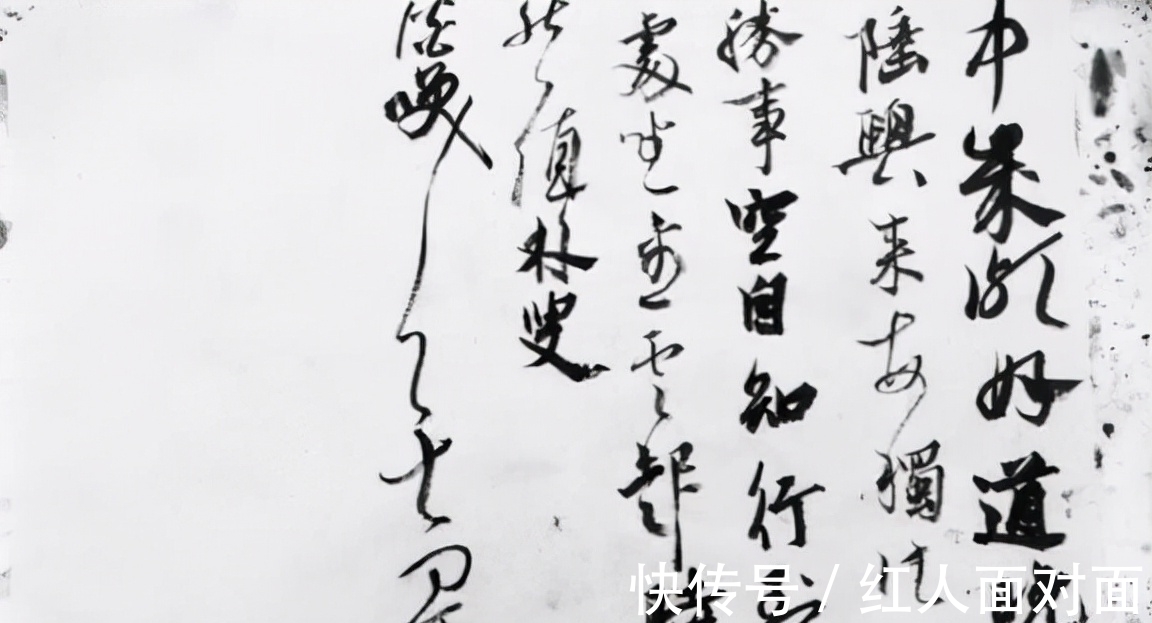 中歲頗好道晚
陲興來每獨往
勝事空自知行到
處坐看雲起時
然值林叟
談咲
快传号 / 红人面对面